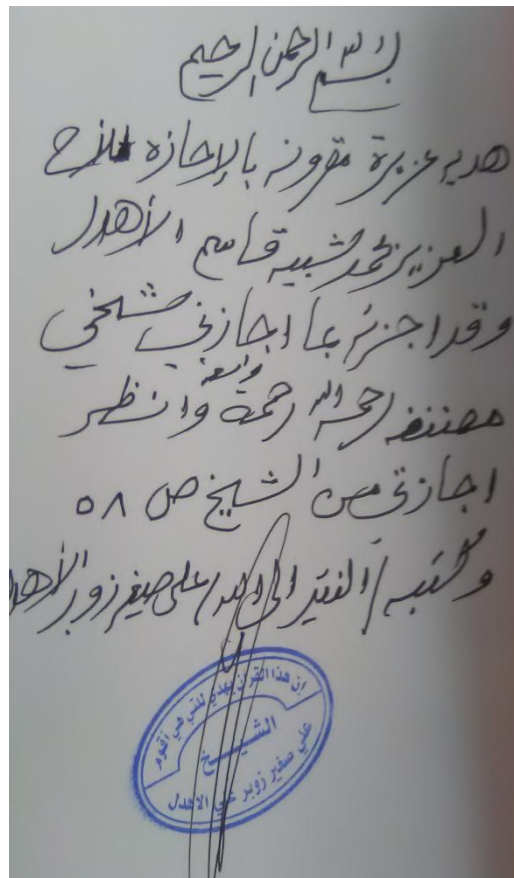 بسم الله الرحمن الرحيم
هديه عزيزة مقرونه بالإجازه للأخ
العزيز محمد شبيه قاسم الأهدل
وقد اجزته بما اجازني شيخي
مصنفه رحمه الله رحمة واسعه وانظر
اجازتي من الشيخ ص ٥٨
وكتبه / الفقير الى الله / علي صغير زوبر الأهدل
إن هذا القرآن يهدي للتي هي أقوم
الشيخ
علي صغير زوبر علي الاهدل